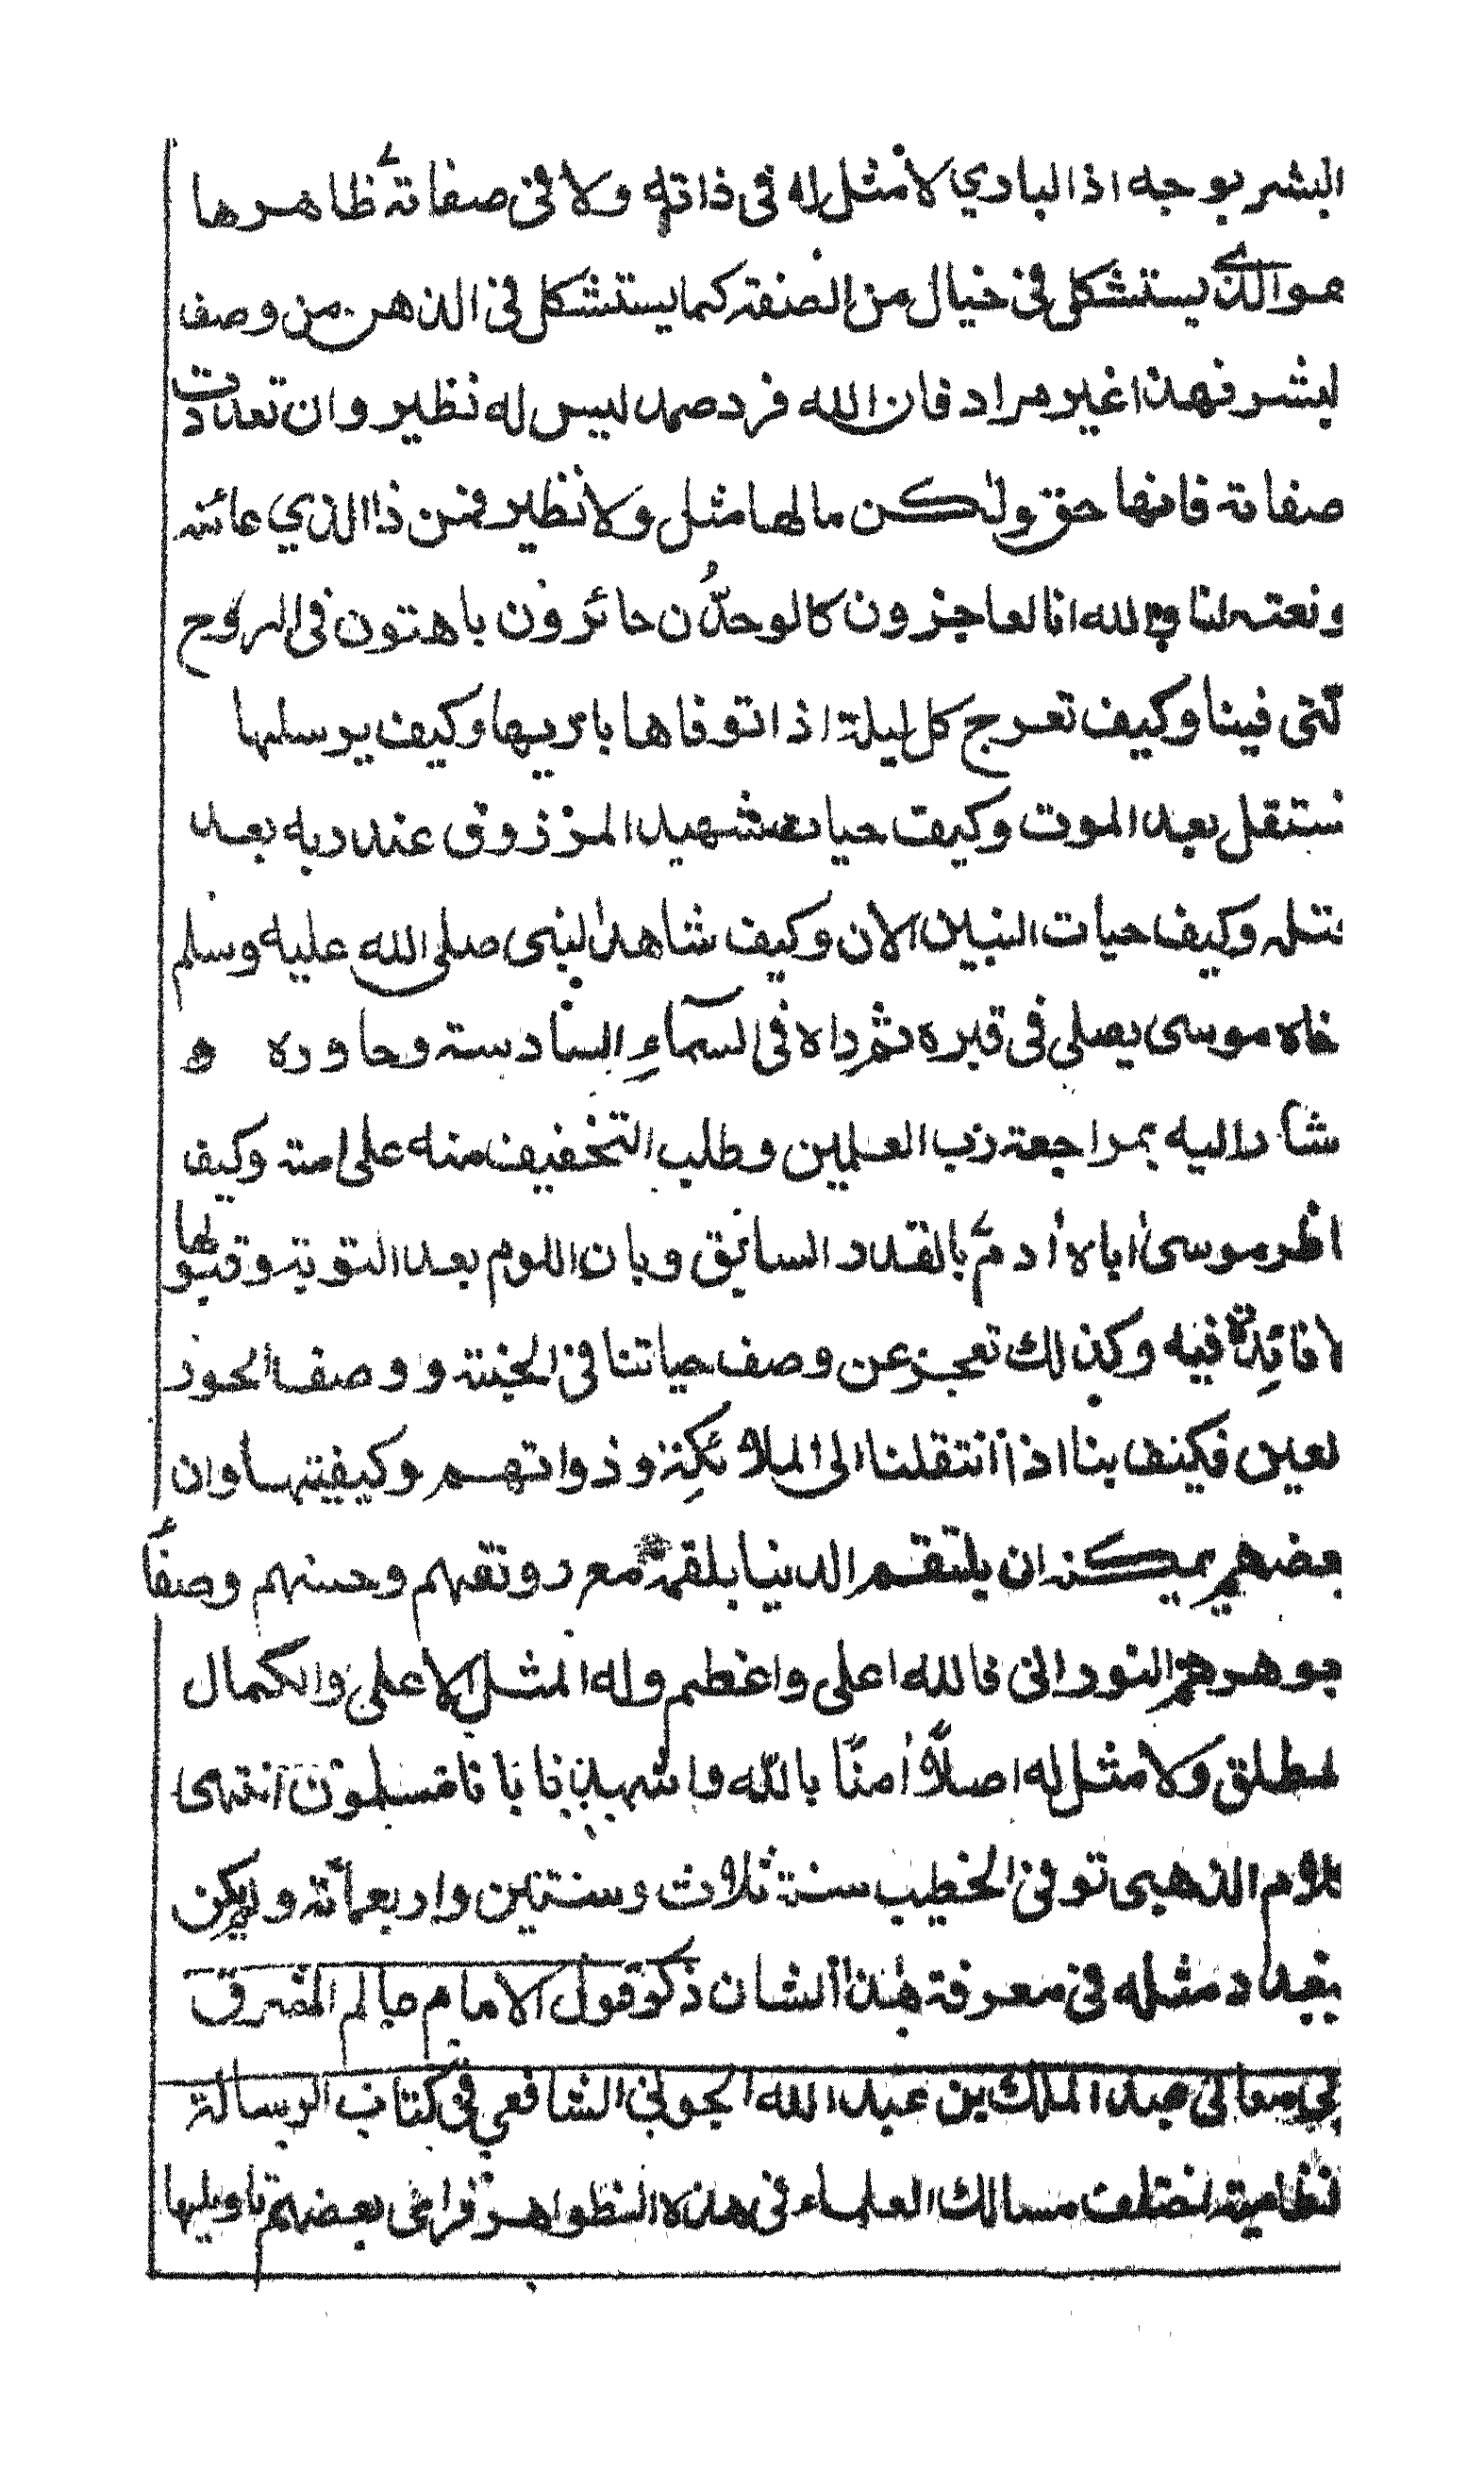 البشر بوجه اذ البادي لا مثل له في ذاته ولا في صفاته ظاهرها
هو الذي يستشكل في خيال من الصفة كما يستشكل في الذهر من وصف
لبشر فهذا غير مراد فان الله فرد صمد ليس له نظير وان تعددت
صفاته فانها حق ولكن مالها مثل ولا نظير فمن ذا الذي عاينه
ونعته لنا والله انا لعاجزون كالوحدُّن حائرون باهتون في الروح
لتى فينا وكيف تعرج كل ليلة اذا توفاها باريها وكيف يرسلها
ستقل بعد الموت وكيف حيات شهيد المرزوق عند ربه بعد
قتله وكيف حيات النبين الان وكيف شاهد النبى صلى الله عليه وسلم
خاه موسى يصلى فى قبره ثم راه فى السمآء السادسة وحاوره ه
شا داليه بمراجعة رب العلمين وطلب التخفيف منه على امته وكيف
اظر موسىٰ اباه أدم بالقدر السابق وبان اللوم بعد التوبة وقبولها
لا فائدة فيه وكذلك تعجز عن وصف حياتنا فى الجنة ووصف الحور
لعين فكيف بنا اذا انتقلنا الى الملائكة وذواتهم وكيفيتها وان
بعضهم يمكنه ان يلتقم الدنيا بلقمة مع رونقهم وحسنهم وصفأ
جوهرهم النورانى فالله اعلى واعظم وله المثل الاعلى والكمال
لمطلق ولا مثل له اصلاً أمنّا بالله واشهد بانا مسلمون انتهى
كلام الذهبى توفى الخطيب سنة ثلاث وستين واربعمائة ولم يكن
ببغداد مثله فى معرفة هذا الشان ذكر قول الامام عالم المشرق
بي معالى عبد الملك بن عبد الله الجونى الشافعي فى كتاب الرسالة
لنظامية اختلف مسالك العلماء فى هذه الظواهر فراى بعضهم تاويلها